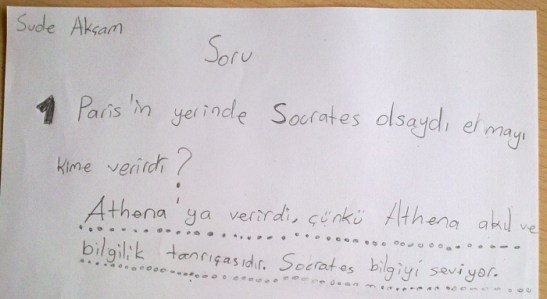 Sude Akçam
Soru
1 Paris'in yerinde Socrates olsaydı elmayı
kime verirdi?
Athena'ya verirdi, çünkü Athena akıl ve
bilgilik tanrıçasıdır. Socrates bilgiyi seviyor.